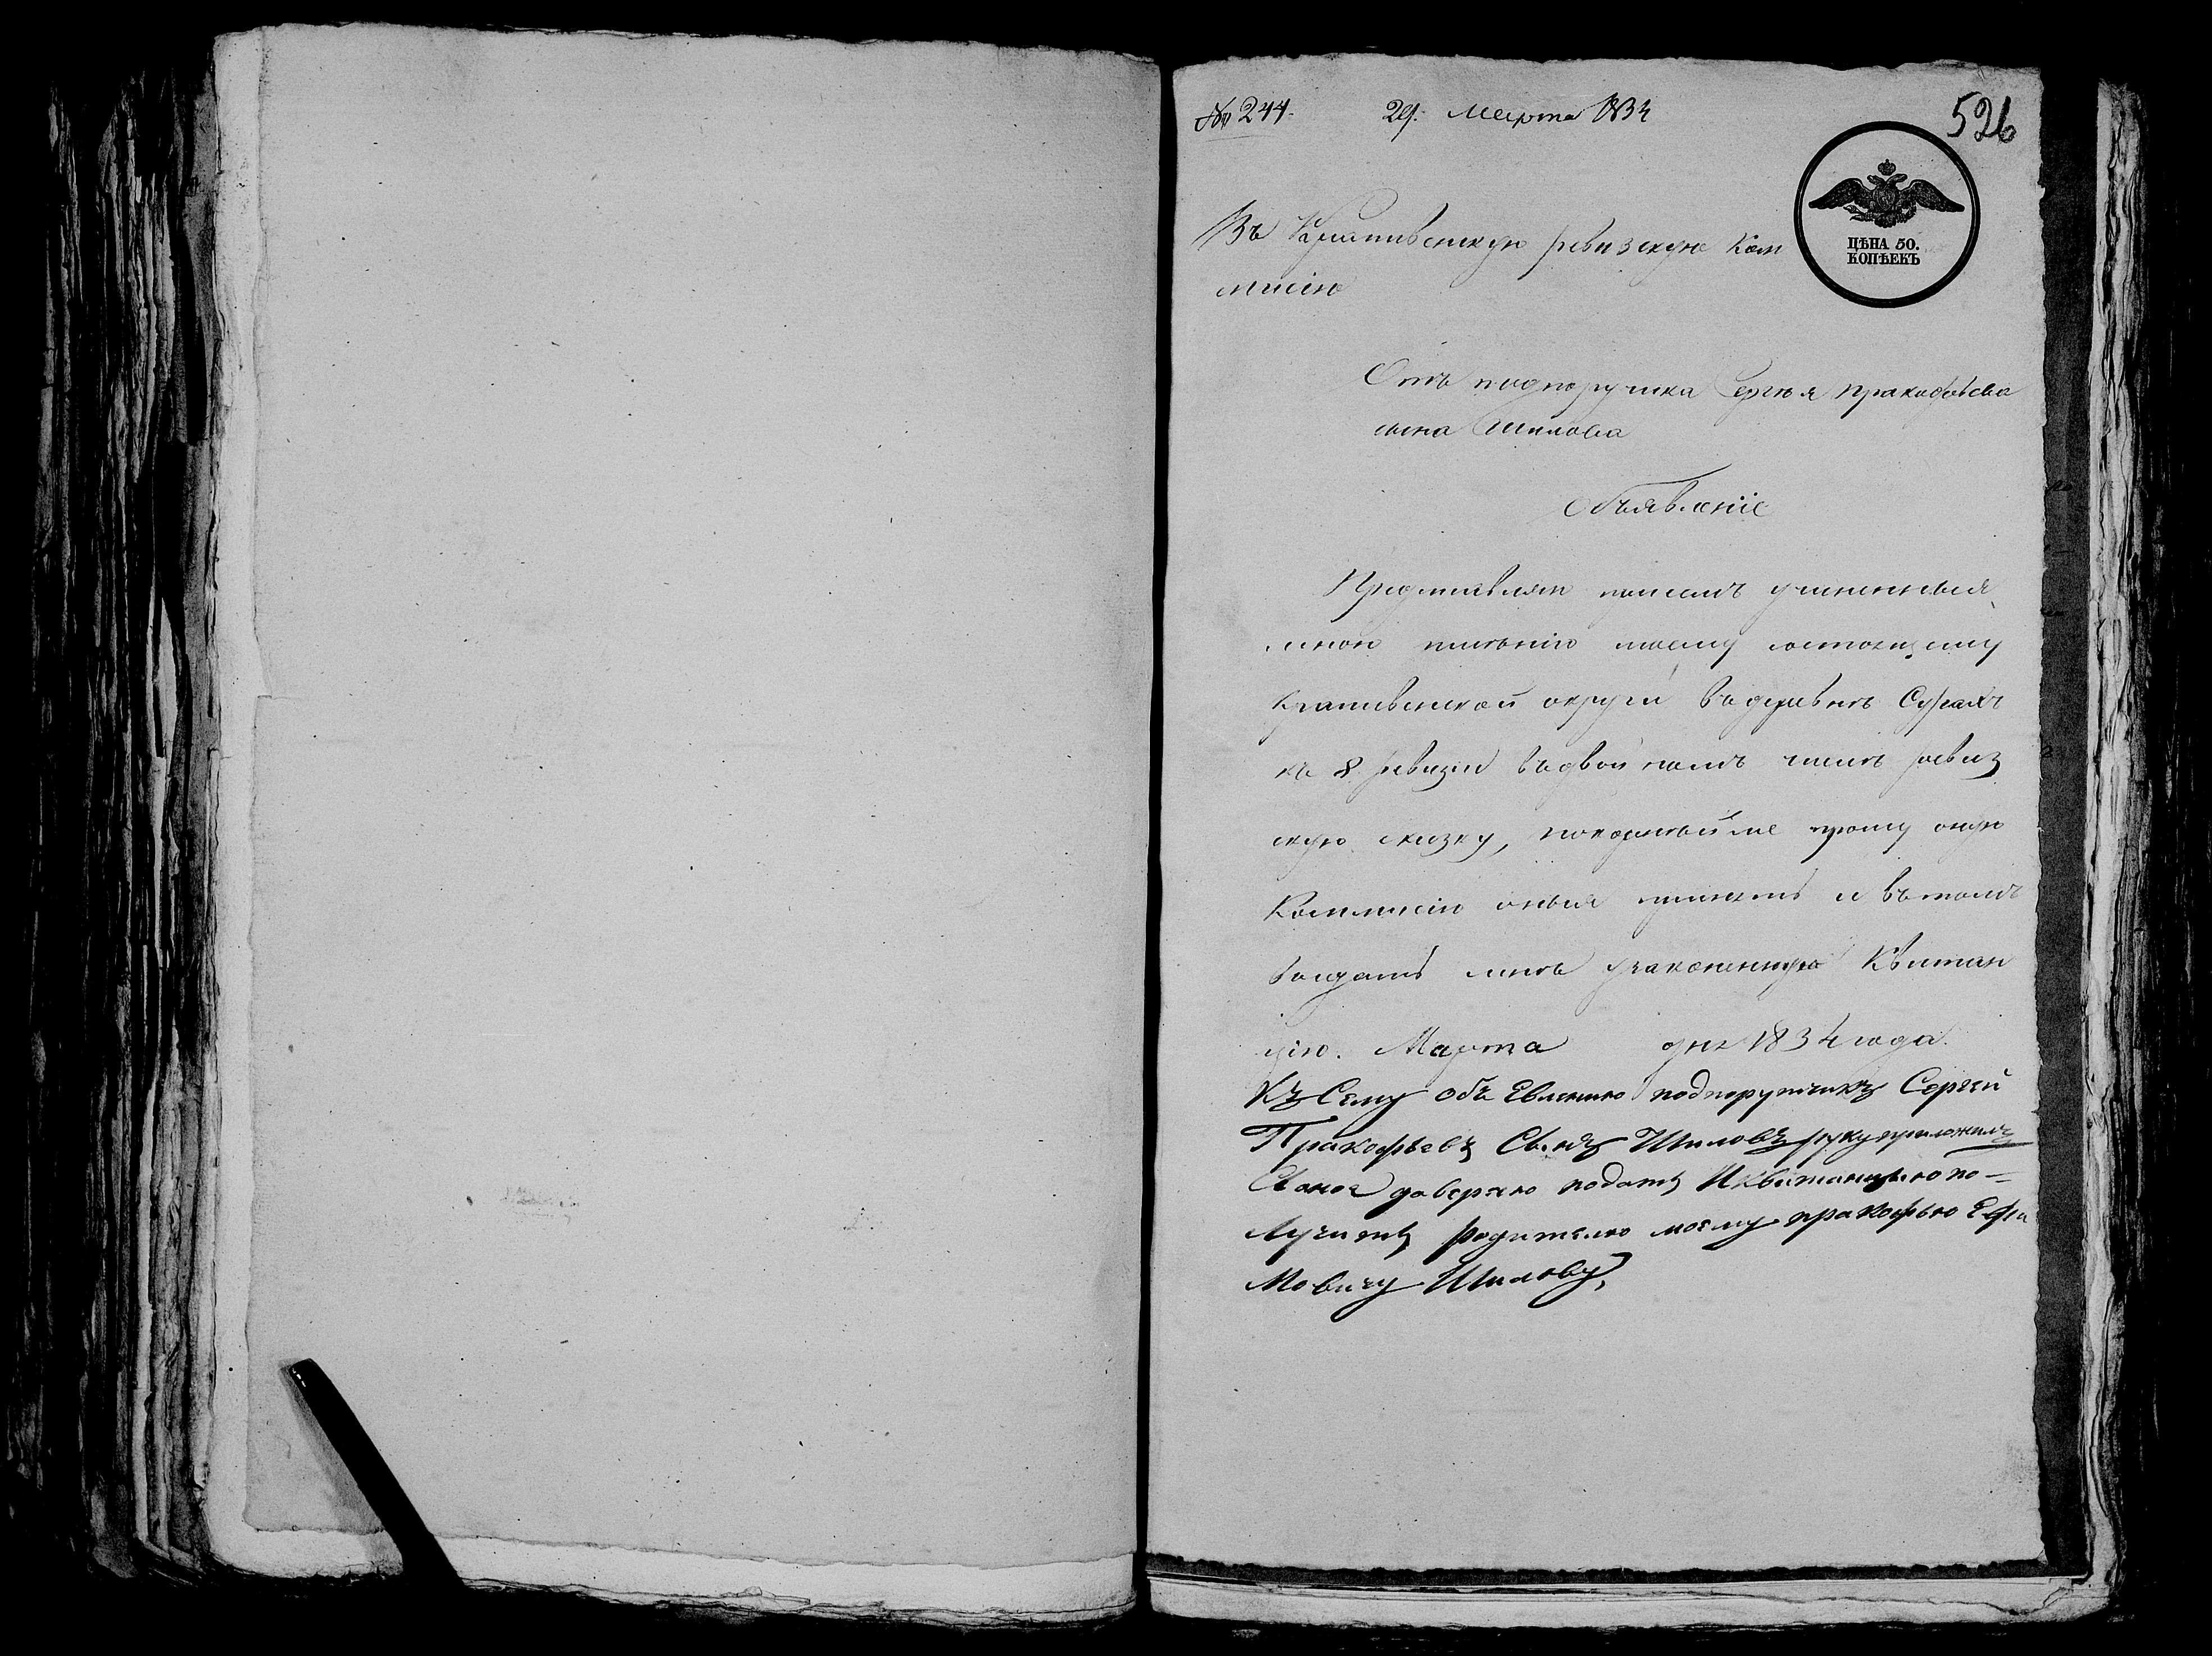 № 244. 29. Марта 1834
526
ЦѢНА 50.
КОПѢЕКЪ
Въ Крапивенскую ревизскую Ком
мисію
Отъ подпоручика Сергѣя Пракофьева
сына Шилова
Объявленіе
Представляю присемъ учиненныя
мною имѣнію моему состоящему
Крапивенской округи въ деревнѣ
къ 8 ревизіи въ двойномъ числѣ ревиз
скую сказку, покорнѣйше прошу оную
Коммисію оныя принять и въ томъ
выдать мнѣ узаконенную Квитан
цію. Марта дня 1834 года.
Къ Сему объ Евлению подпорутчикъ Сергей
Пракофьевъ Сынъ Шиловъ руку приложилъ
доверяю подать И квитанцыю по-
лучить родителю моему пракофью Ефи
Мовичу Шилову,